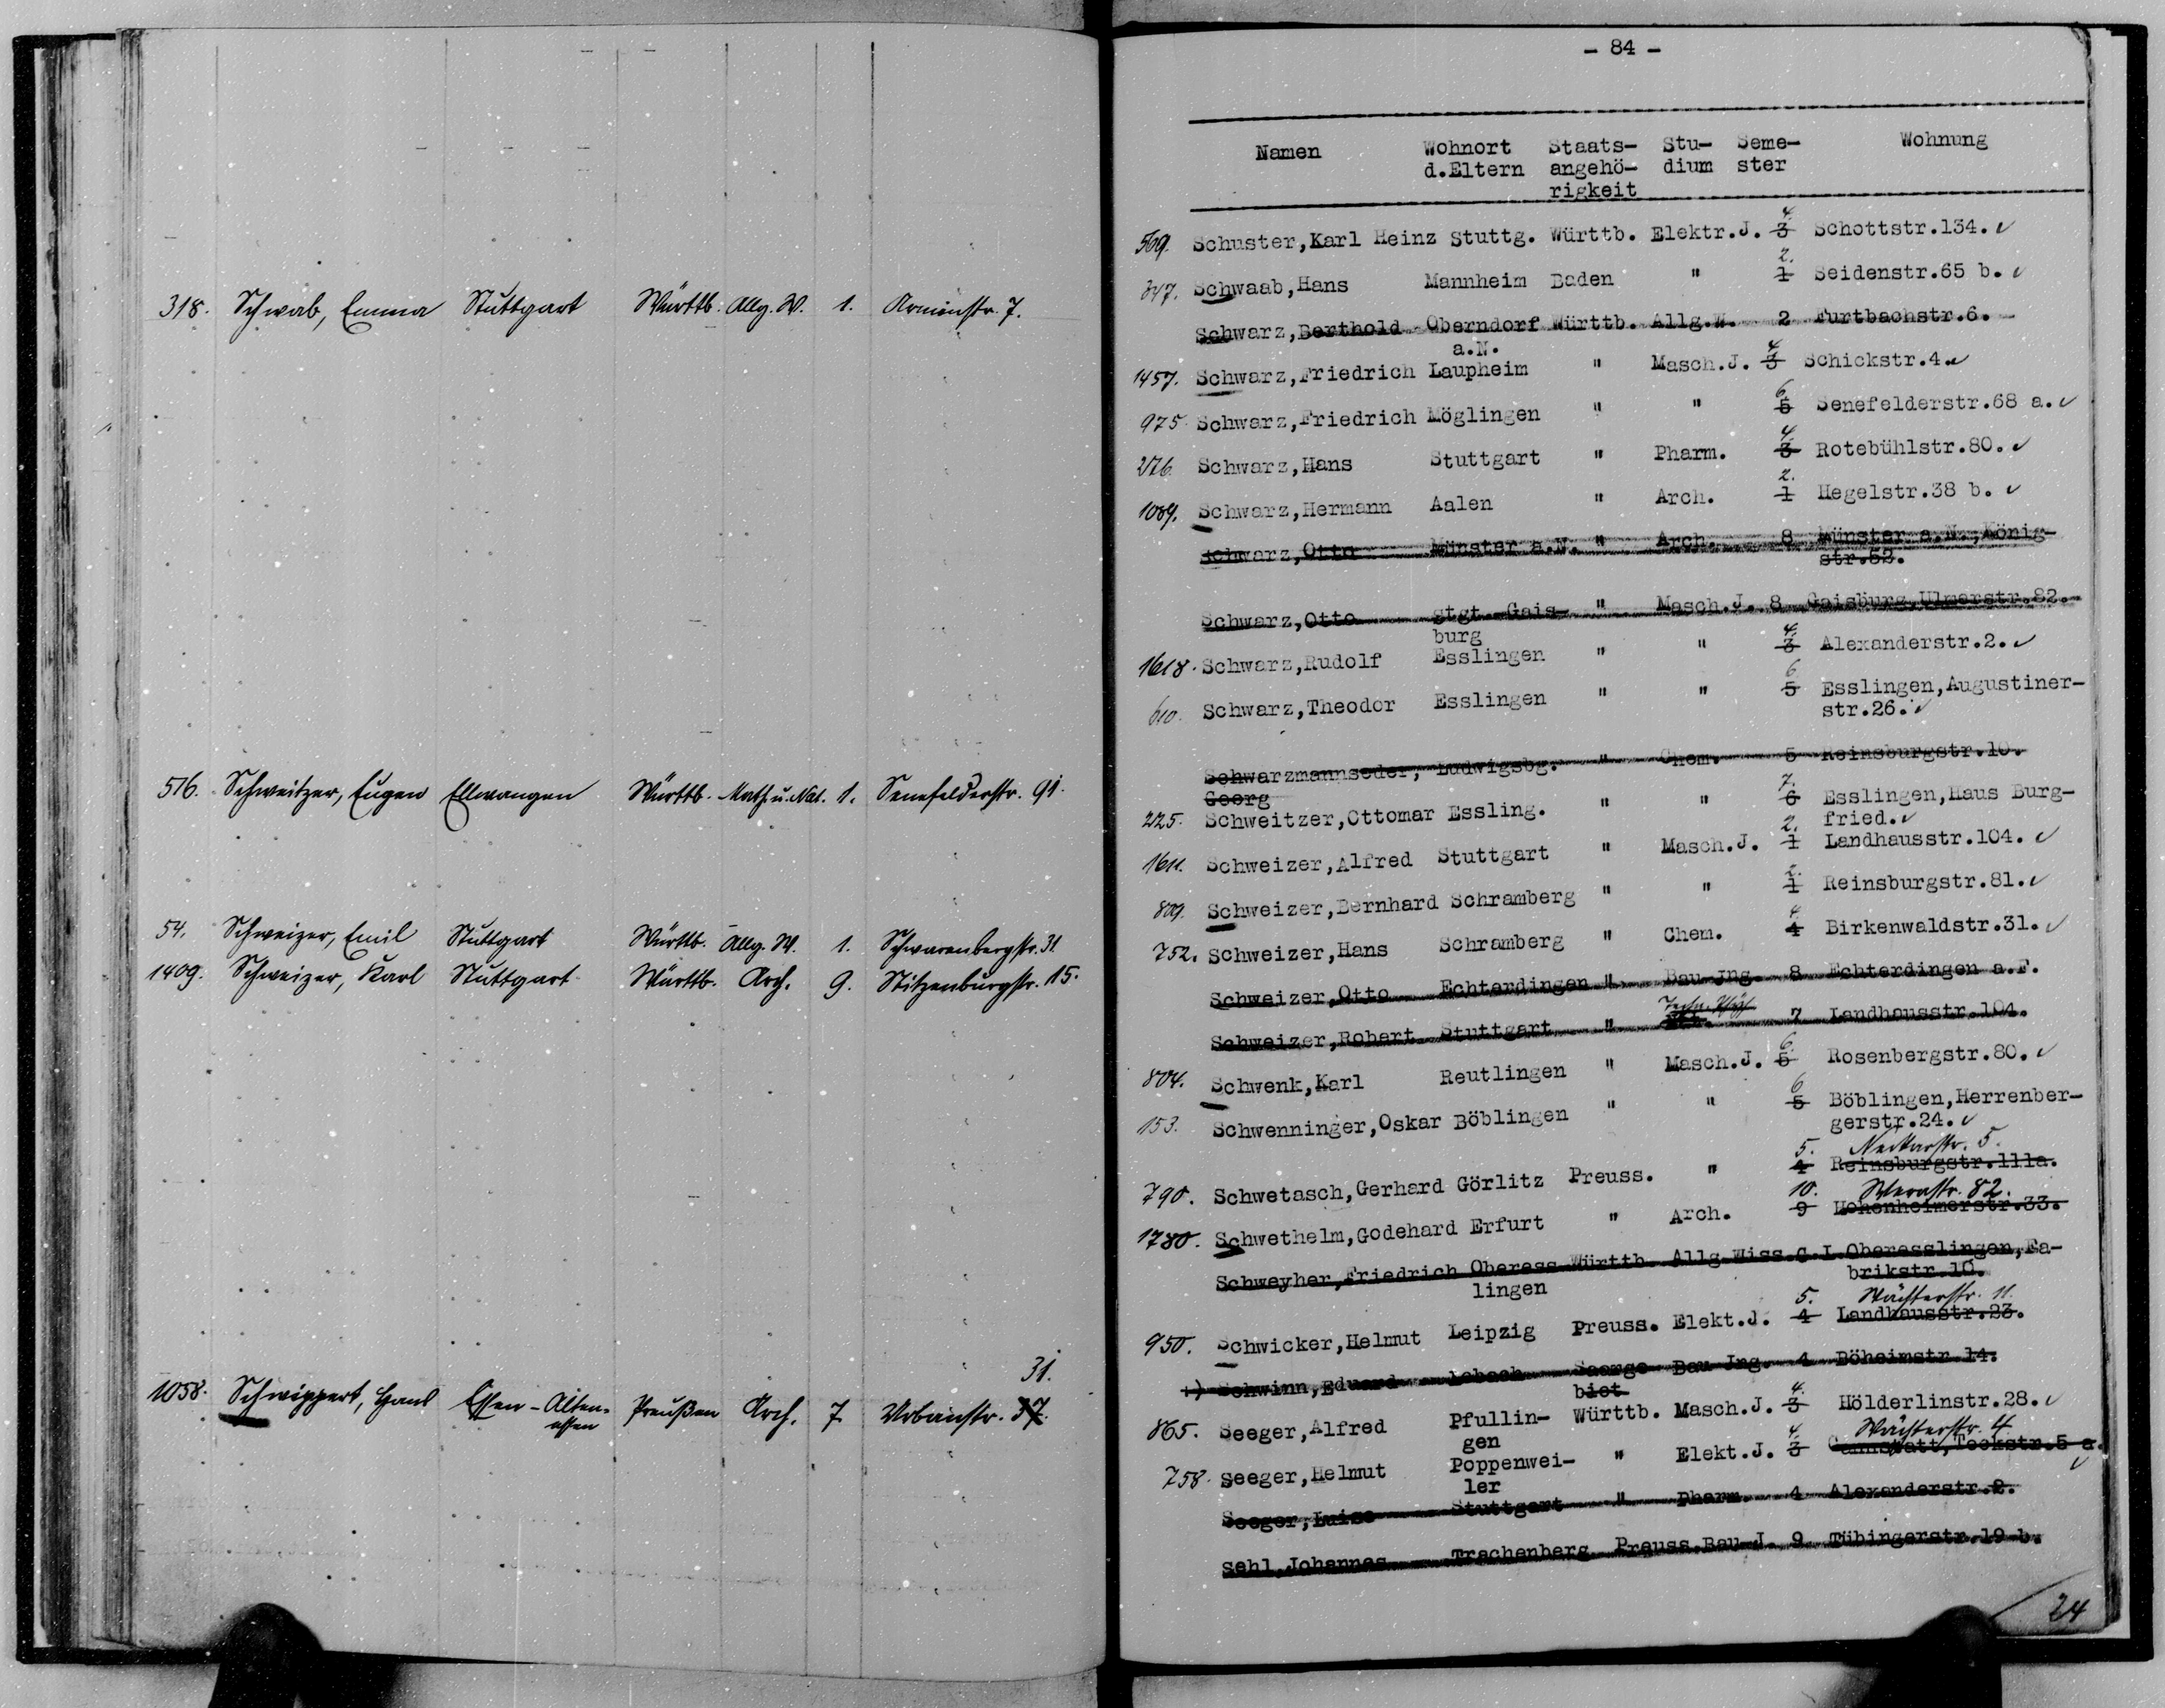 318. Schwab, Emma Stuttgart Württb. Allg. W. 1. Arminstr. 7.
516. Schweitzer, Eugen Ellwangen Württb. Math. u. Nat. 1. Senefelderstr. 91.
54. Schweizer, Emil Stuttgart Württb. Allg. W. 1. Schwarenbergstr. 31
1409. Schweizer, Karl Stuttgart Württb. Arch. 9. Stitzenburgstr. 15.
31.
1058. Schwippert, Hans Essen-Alten- Preußen Arch. 7 Urbanstr. 37.
essen
- 84 -
Namen Wohnort Staats- Stu- Seme- Wohnung
d.Eltern angehö- dium ster
rigkeit
4.
569. Schuster,Karl Heinz Stuttg. Württb. Elektr.J. 3 Schottstr.134.
2.
347. Schwaab,Hans Mannheim Baden " 1 Seidenstr.65 b.
Schwarz,Berthold Oberndorf Württb. Allg.W. 2 Furtbachstr.6.
a.N.
4
1457. Schwarz,Friedrich Laupheim " Masch.J. 3 Schickstr.4.
6.
975. Schwarz,Friedrich Möglingen " " 5 Senefelderstr.68 a.
4.
276. Schwarz,Hans Stuttgart " Pharm. 3 Rotebühlstr.80.
2.
1089. Schwarz,Hermann Aalen " Arch. 1 Hegelstr.38 b.
Schwarz,Otto Münster a.N. " Arch. 8 Münster a.N.,König-
str.52.
Schwarz,Otto Stgt.-Gais- " Masch.J. 8 Gaisburg,Ulmerstr.82.
burg
4.
1618. Schwarz,Rudolf Esslingen " " 3 Alexanderstr.2.
6
610. Schwarz,Theodor Esslingen " " 5 Esslingen,Augustiner-
str.26.
Schwarzmannseder, Ludwigsbg. " Chem. 5 Reinsburgstr.10.
Georg
7.
225. Schweitzer,Ottomar Essling. " " 6 Esslingen,Haus Burg-
fried.
2.
1611. Schweizer,Alfred Stuttgart " Masch.J. 1 Landhausstr.104.
2.
809. Schweizer,Bernhard Schramberg " " 1 Reinsburgstr.81.
4.
752. Schweizer,Hans Schramberg " Chem. 4 Birkenwaldstr.31.
Schweizer,Otto Echterdingen " Bau-Jng. 8 Echterdingen a.F.
Techn. Phys.
Schweizer,Robert Stuttgart " 7 Landhausstr.104.
6.
804. Schwenk,Karl Reutlingen " Masch.J. 5 Rosenbergstr.80.
6
153. Schwenninger,Oskar Böblingen " " 5 Böblingen,Herrenber-
gerstr.24.
5. Neckarstr. 5.
790. Schwetasch,Gerhard Görlitz Preuss. " 4 Reinsburgstr.111a.
10. Wernstr. 82.
1780. Schwethelm,Godehard Erfurt " Arch. 9 Hohenheimerstr.33.
Schweyher,Friedrich Oberess- Württb. Allg.Wiss. Oberesslingen,Fa-
lingen brikstr.10.
5. Wächterstr. 11.
950. Schwicker,Helmut Leipzig Preuss. Elekt.J. 4 Landhausstr.23.
+) Schwinn,Eduard Lebach Saarge- Bau-Jng. 4 Böheimstr.14.
biet
4.
865. Seeger,Alfred Pfullin- Württb. Masch.J. 3 Hölderlinstr.28.
gen
4. Wächterstr. 4
758. Seeger,Helmut Poppenwei- " Elekt.J. 3 Cannstatt,Teckstr.5 a.
ler
Seeger,Luise Stuttgart " Pharm. 4 Alexanderstr.2.
Sehl,Johannes Trachenberg Preuss. Bau-J. 9 Tübingerstr.19 b.
24